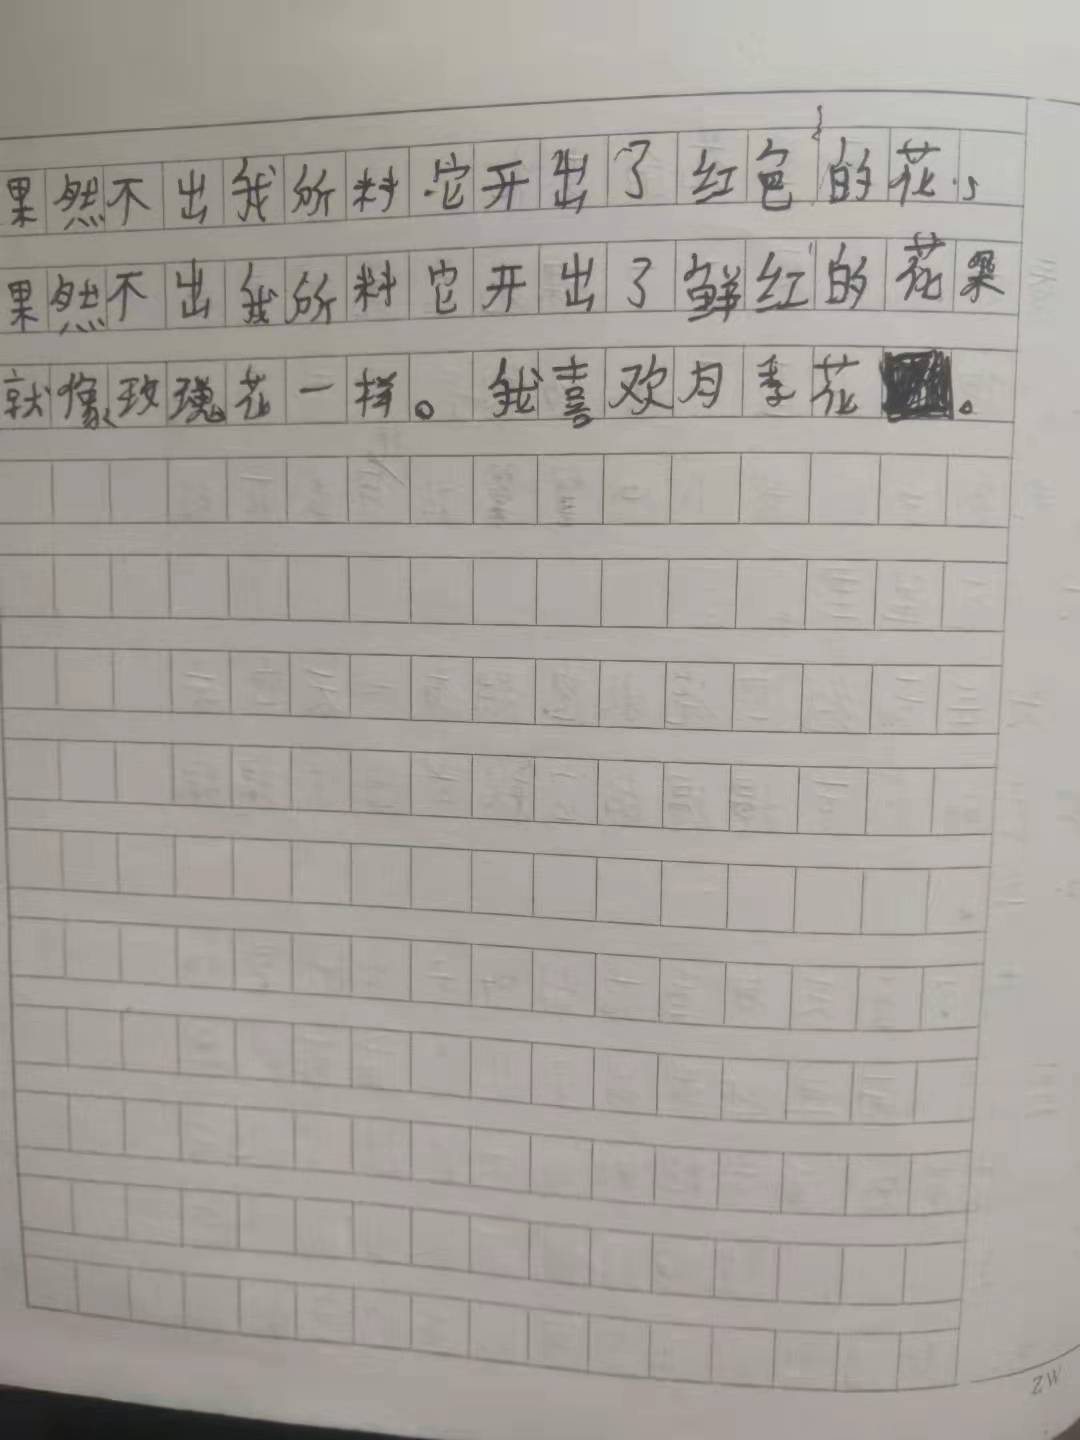 果然不出我所料它开出了红色的花，
果然不出我所料它开出了鲜红的花朵
就像玫瑰花一样。我喜欢月季花。
ZW